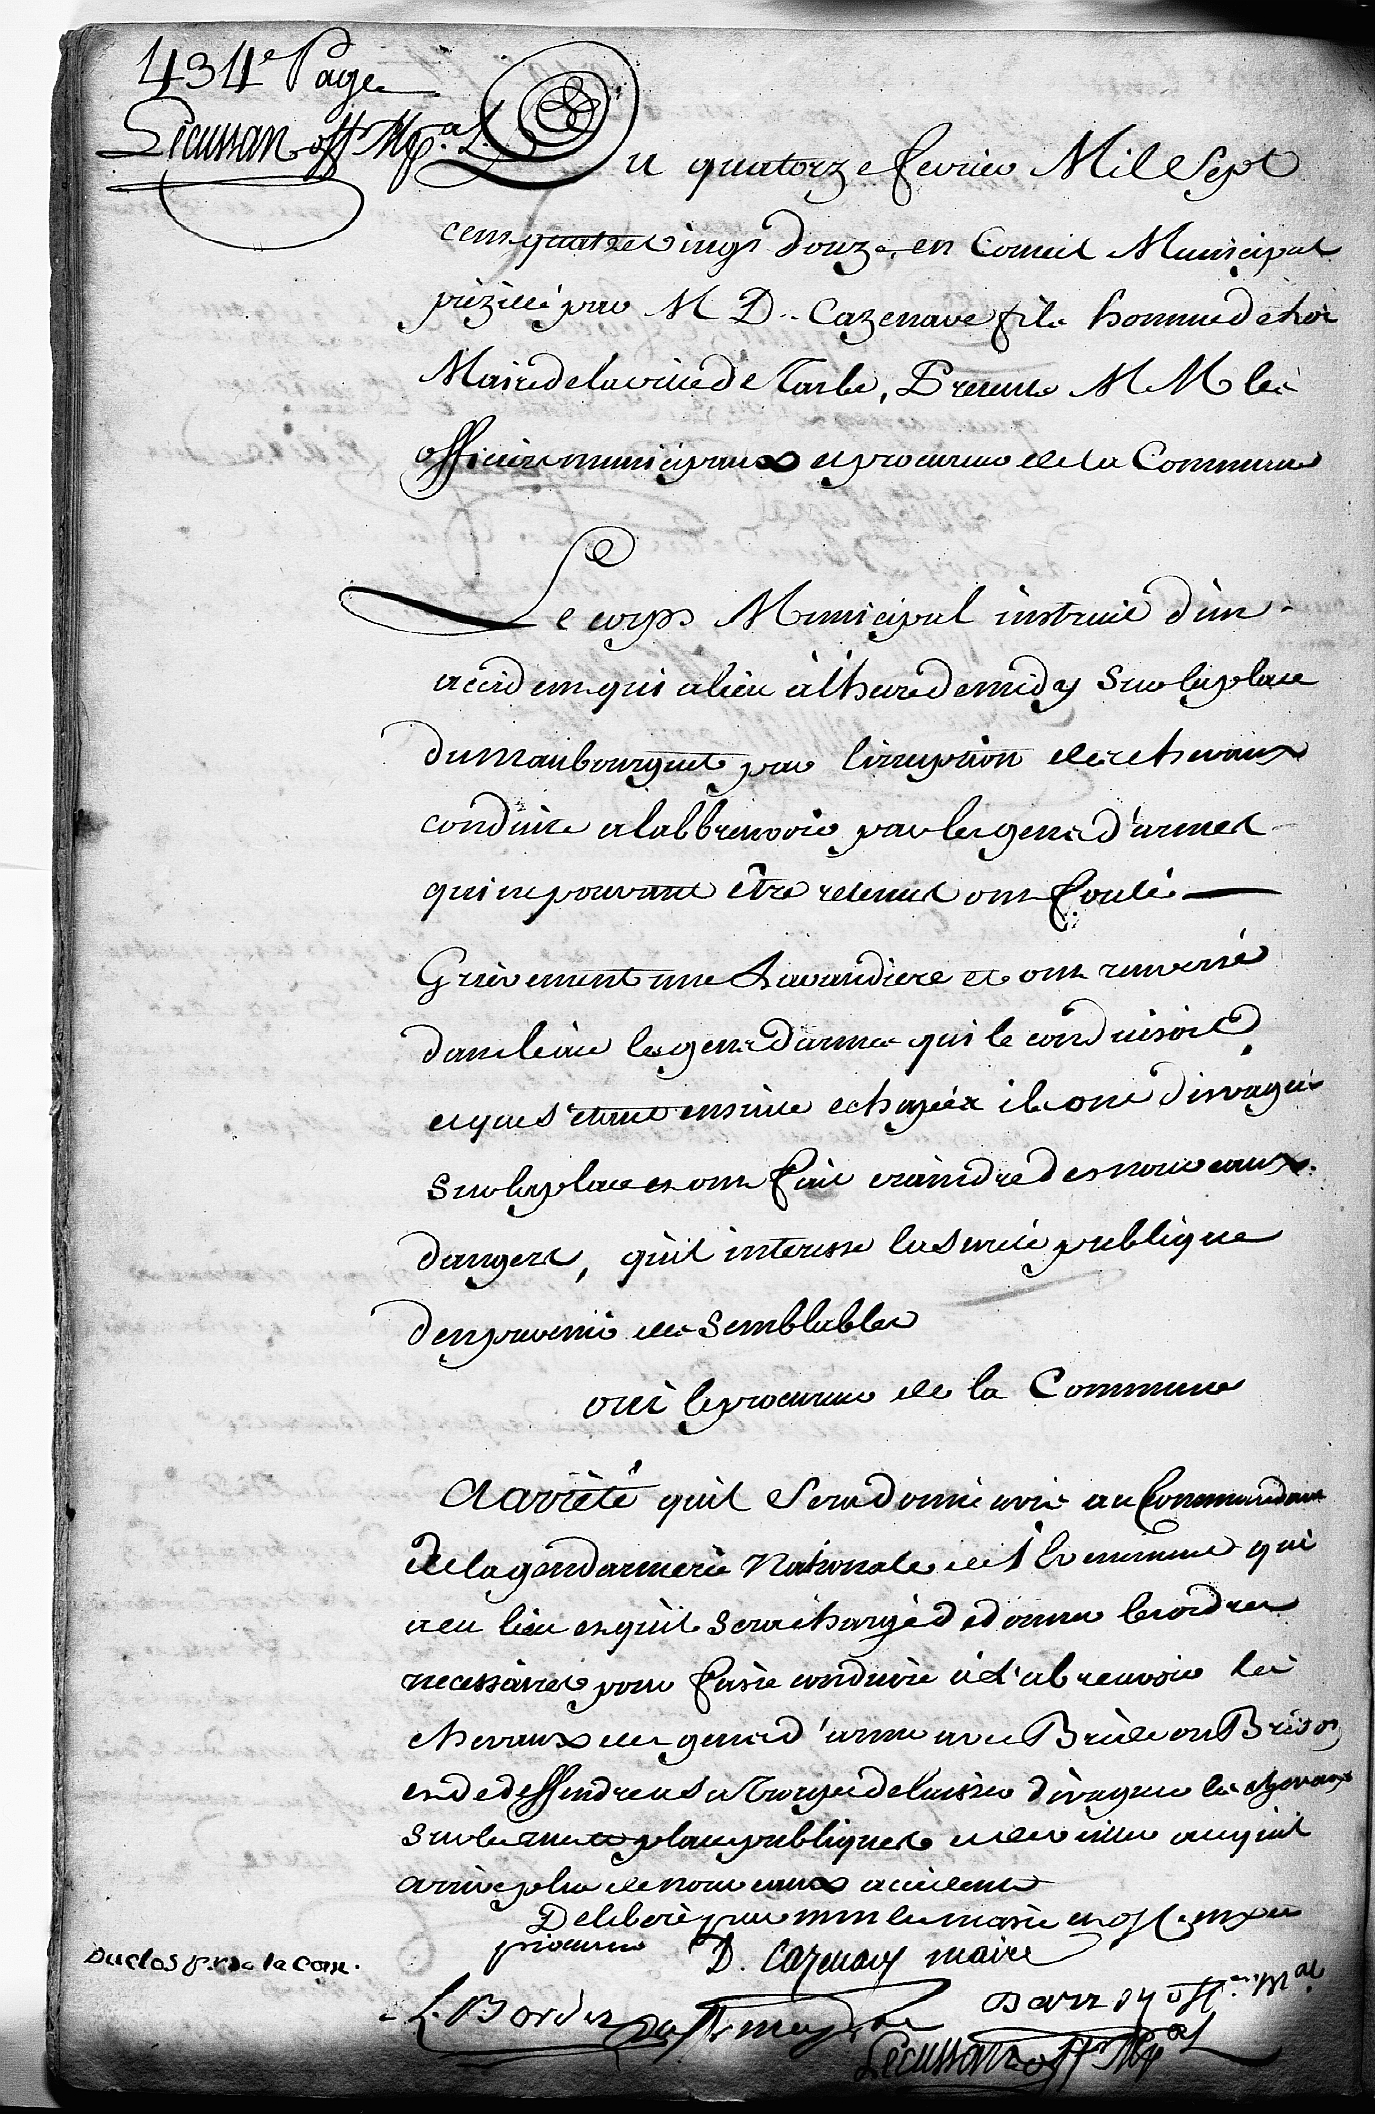 434e Page
Lécussan offr Mpal
Du quatorze fevrier Mil Sept
cens quatre vings douze, en Conseil Municipal
prézidé par M D. Cazenave fils homme de loi
Maire de la ville de Tarbe, Presents M M les
officiers municipaux et procureur de la Commune
Le corps Municipal instruit d'un
accident qui a lieu à l'heure de midy sur la place
du maubourguet par l'irruption des chevaux
conduits a labbreuvoir par les gens d'armes
qui ne pouvant être retenus ont foulé
Grièvement une Lavandiere et ont renversé
dans l'eau les gens darmes qui le conduisoit
et que s'etant ensuite echapés ils ont divagué
sur la place et ont fait craindre des nouveaux
dangers, qu'il interesse la sureté publique
den prevenir des semblables
oui le procureur de la Commune
A arrêté quil sera donné avis au Commandant
de la gendarmerie Nationale de l'Evenement qui
a eu lieu et qu'il sera chargé de donner les ordres
necessaires pour faire conduire à l'abreuvoir les
chevaux des gens d'arme avec Bride ou Bridon
et de deffendre a sa troupe de laisser divaguer les chevaux
sur les rues et places publiques de la ville au quil
arrive plus de nouveaux accidents
Deliberé par mm les maire et off. mpx et
procureur D. Cazenave maire
Duclos pr. de la Com.
L. Bordes Darr off. mal
Lécussan offr Mpal